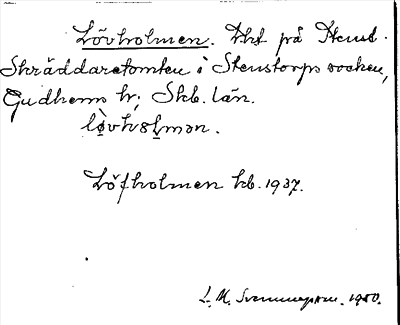 Lövholmen. Tht på Hemst.
Skräddaretomten i Stenstorps socken,
Gudhems hr; Skb. län.
lø̀vhɷlmən.
Löfholmen kb. 1937.
L. M. Svennungsson. 1950.